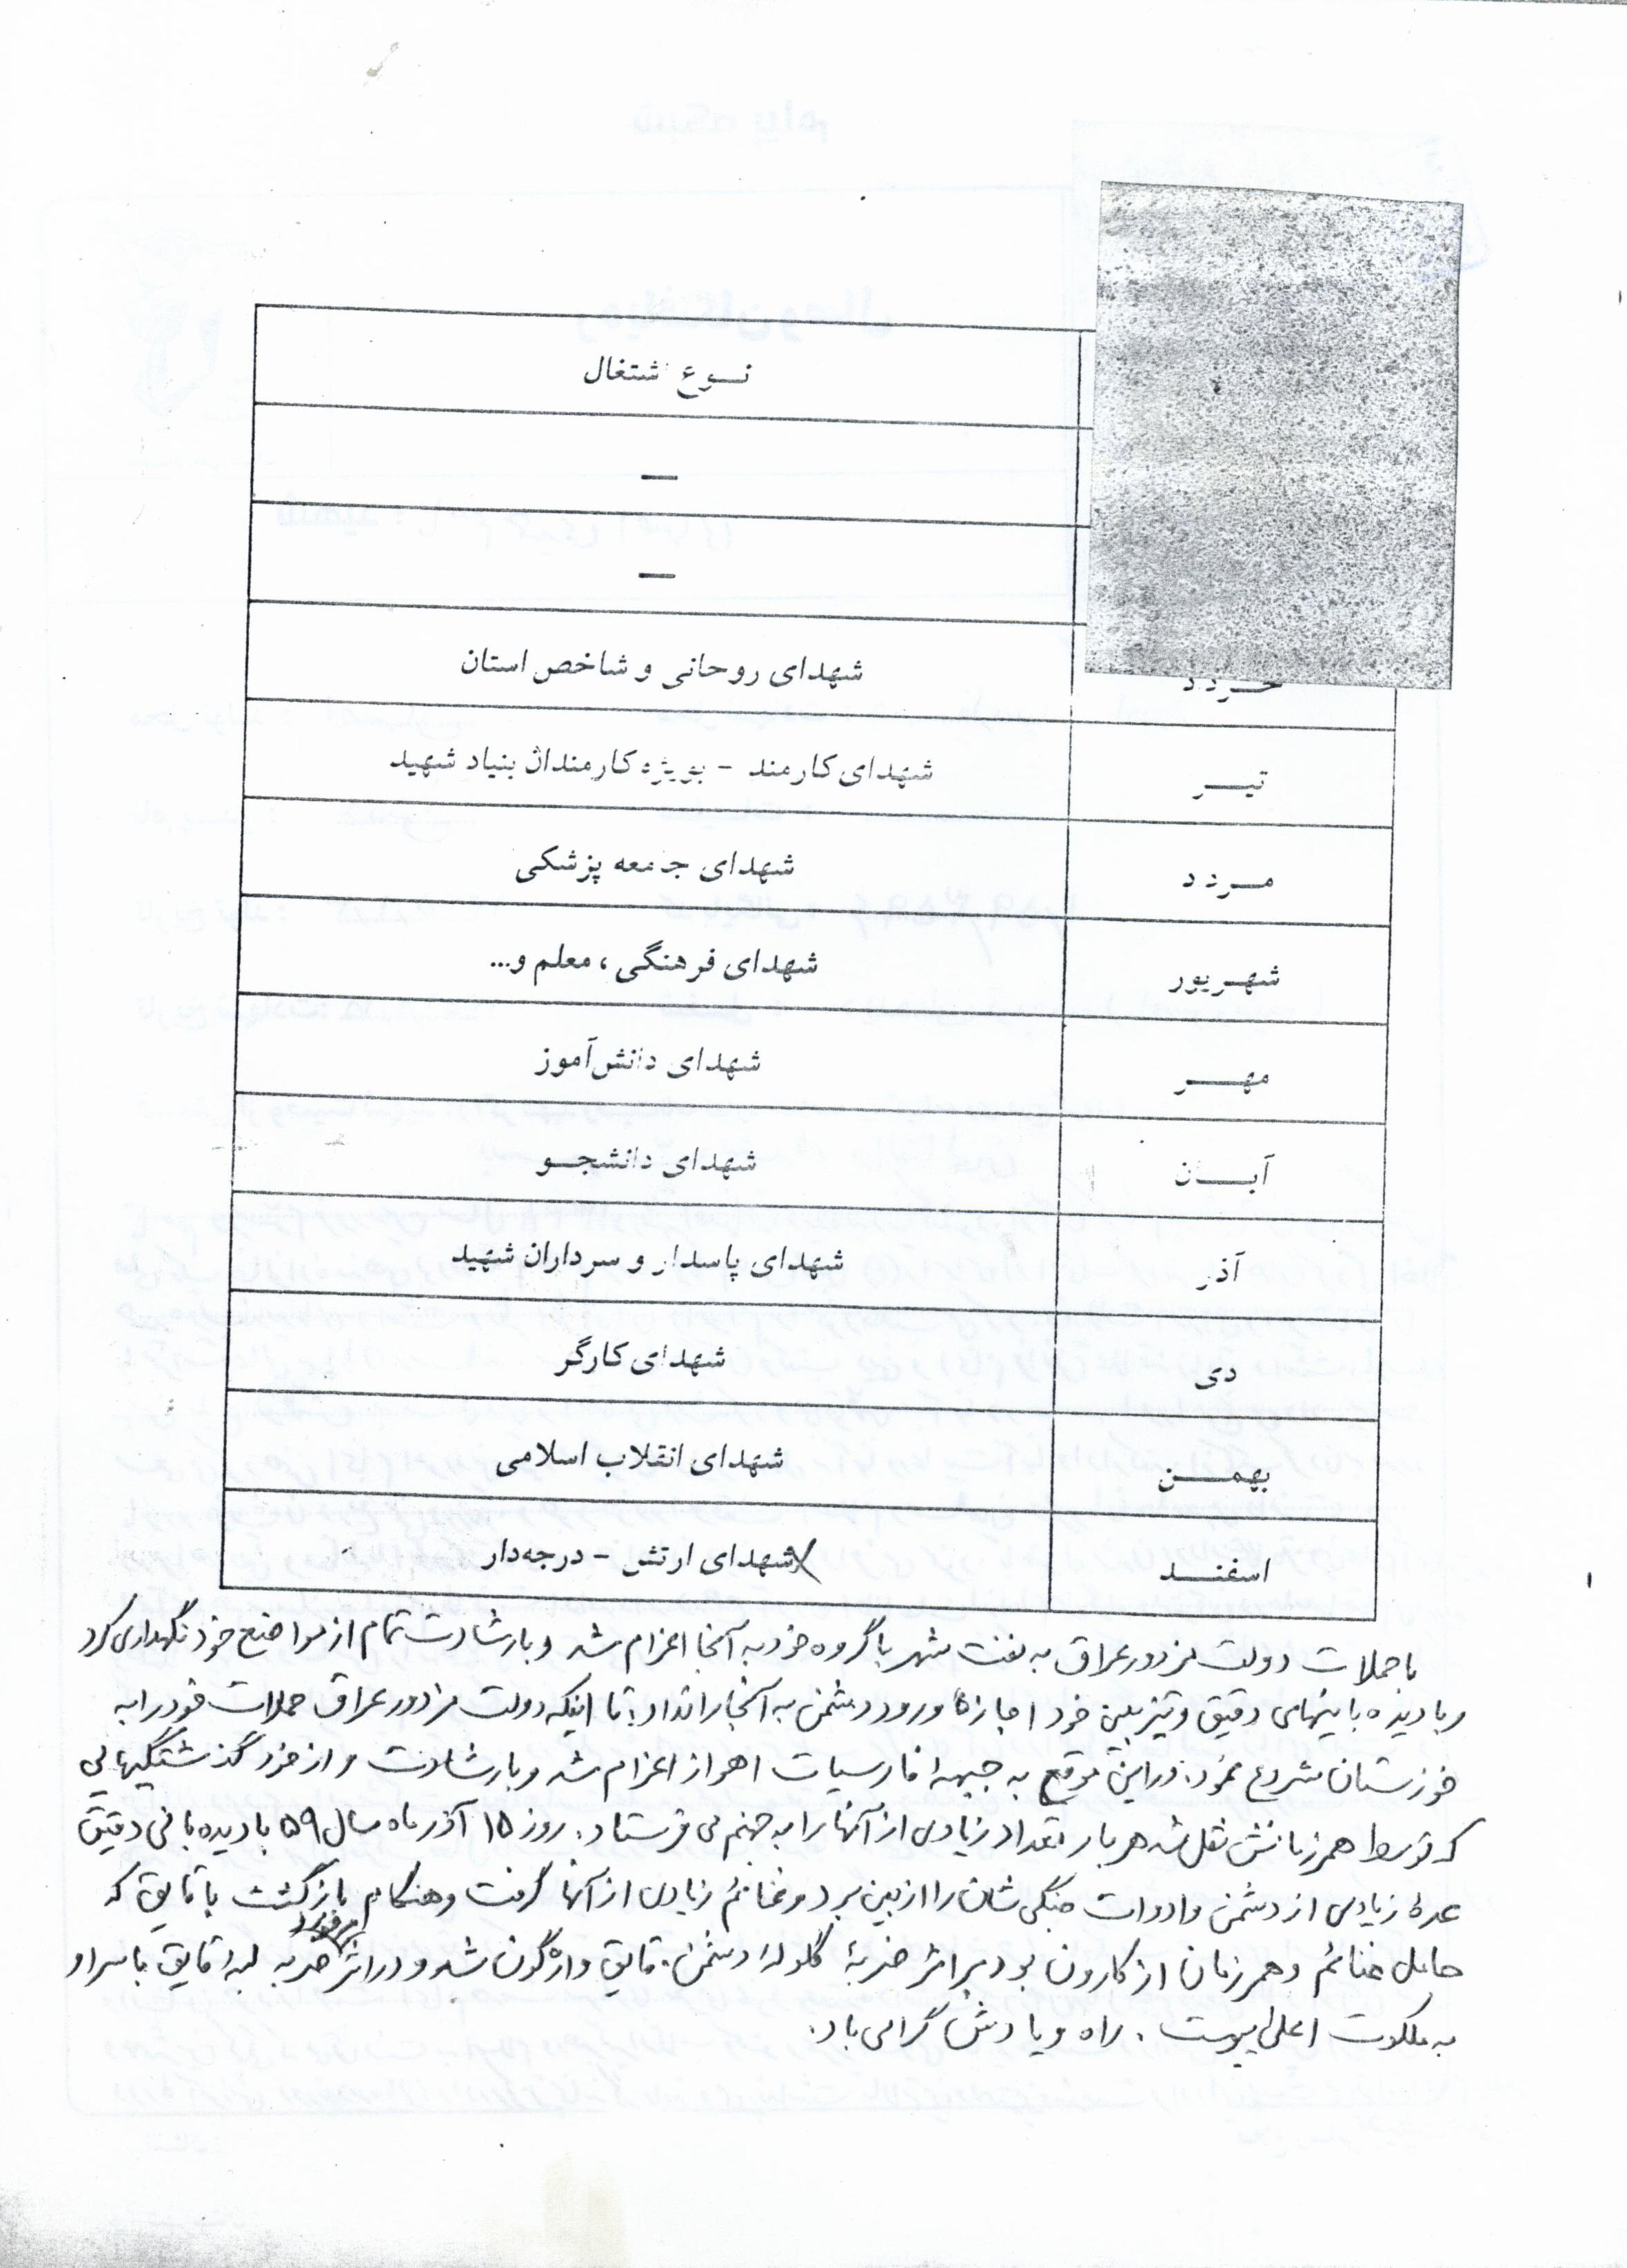 نوع شتغال
—
—
خردد شهدای روحانی و شاخص استان
تیر شهدای کارمند - بویژه کارمندان بنیاد شهید
مردد شهدای جامعه پزشکی
شهریور شهدای فرهنگی ، معلم و...
مهر شهدای دانش‌آموز
آبان شهدای دانشجو
آذر شهدای پاسدار و سرداران شهید
دی شهدای کارگر
بهمن شهدای انقلاب اسلامی
اسفند شهدای ارتش - درجه‌دار
با حملات دولت مزدور عراق به نفت شهر با گروه خود به آنجا اعزام شد و با رشادت تمام از مواضع خود نگهداری کرد
و با دیده بانیهای دقیق و تیزبین خود اجازهٔ ورود دشمن به آنجا را نداد، تا اینکه دولت مزدور عراق حملات خود را به
خوزستان شروع نمود، در این موقع به جبهه فارسیات اهواز اعزام شد و با رشادت و از خود گذشتگیهایی
که توسط همرزمانش نقل شد هر بار تعداد زیادی از آنها را به جهنم می فرستاد. روز ۱۵ آذر ماه سال ۵۹ با دیده بانی دقیق
عدهٔ زیادی از دشمن و ادوات جنگی شان را از بین برد و غنائم زیادی از آنها گرفت و هنگام بازگشت با قایق که
حامل غنائم و همرزمان از کارون بود بر اثر ضربهٔ گلوله دشمن، قایق واژگون شد و در اثر برخورد ضربه لبه قایق با سر او
به ملکوت اعلی پیوست. راه و یادش گرامی باد.